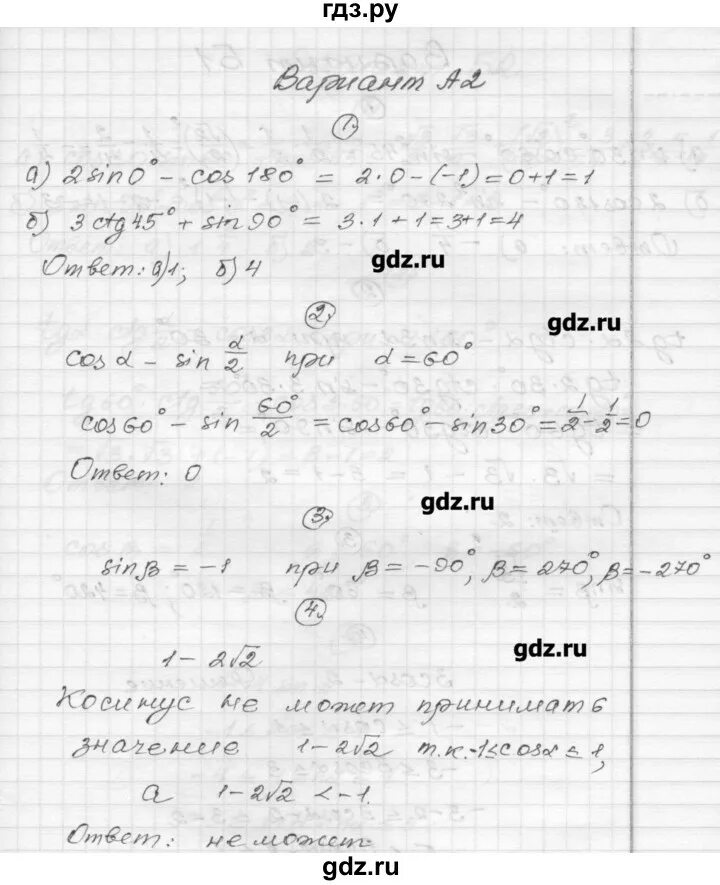 гдз.ру
Вариант А2
1.
а) 2 sin 0° - cos 180° = 2·0 - (-1) = 0+1 = 1
б) 3 ctg 45° + sin 90° = 3·1 + 1 = 3+1 = 4
Ответ: а) 1; б) 4
gdz.ru
2.
gdz.ru
cos α - sin α/2 при α = 60°
cos 60° - sin 60°/2 = cos 60° - sin 30° = 1/2 - 1/2 = 0
Ответ: 0
gdz.ru
3.
sin β = -1 при β = -90°, β = 270°, β = -270°
4.
1 - 2√2
gdz.ru
Косинус не может принимать
значение 1 - 2√2 т.к. -1 ≤ cos α ≤ 1,
а 1 - 2√2 < -1.
Ответ: не может
gdz.ru